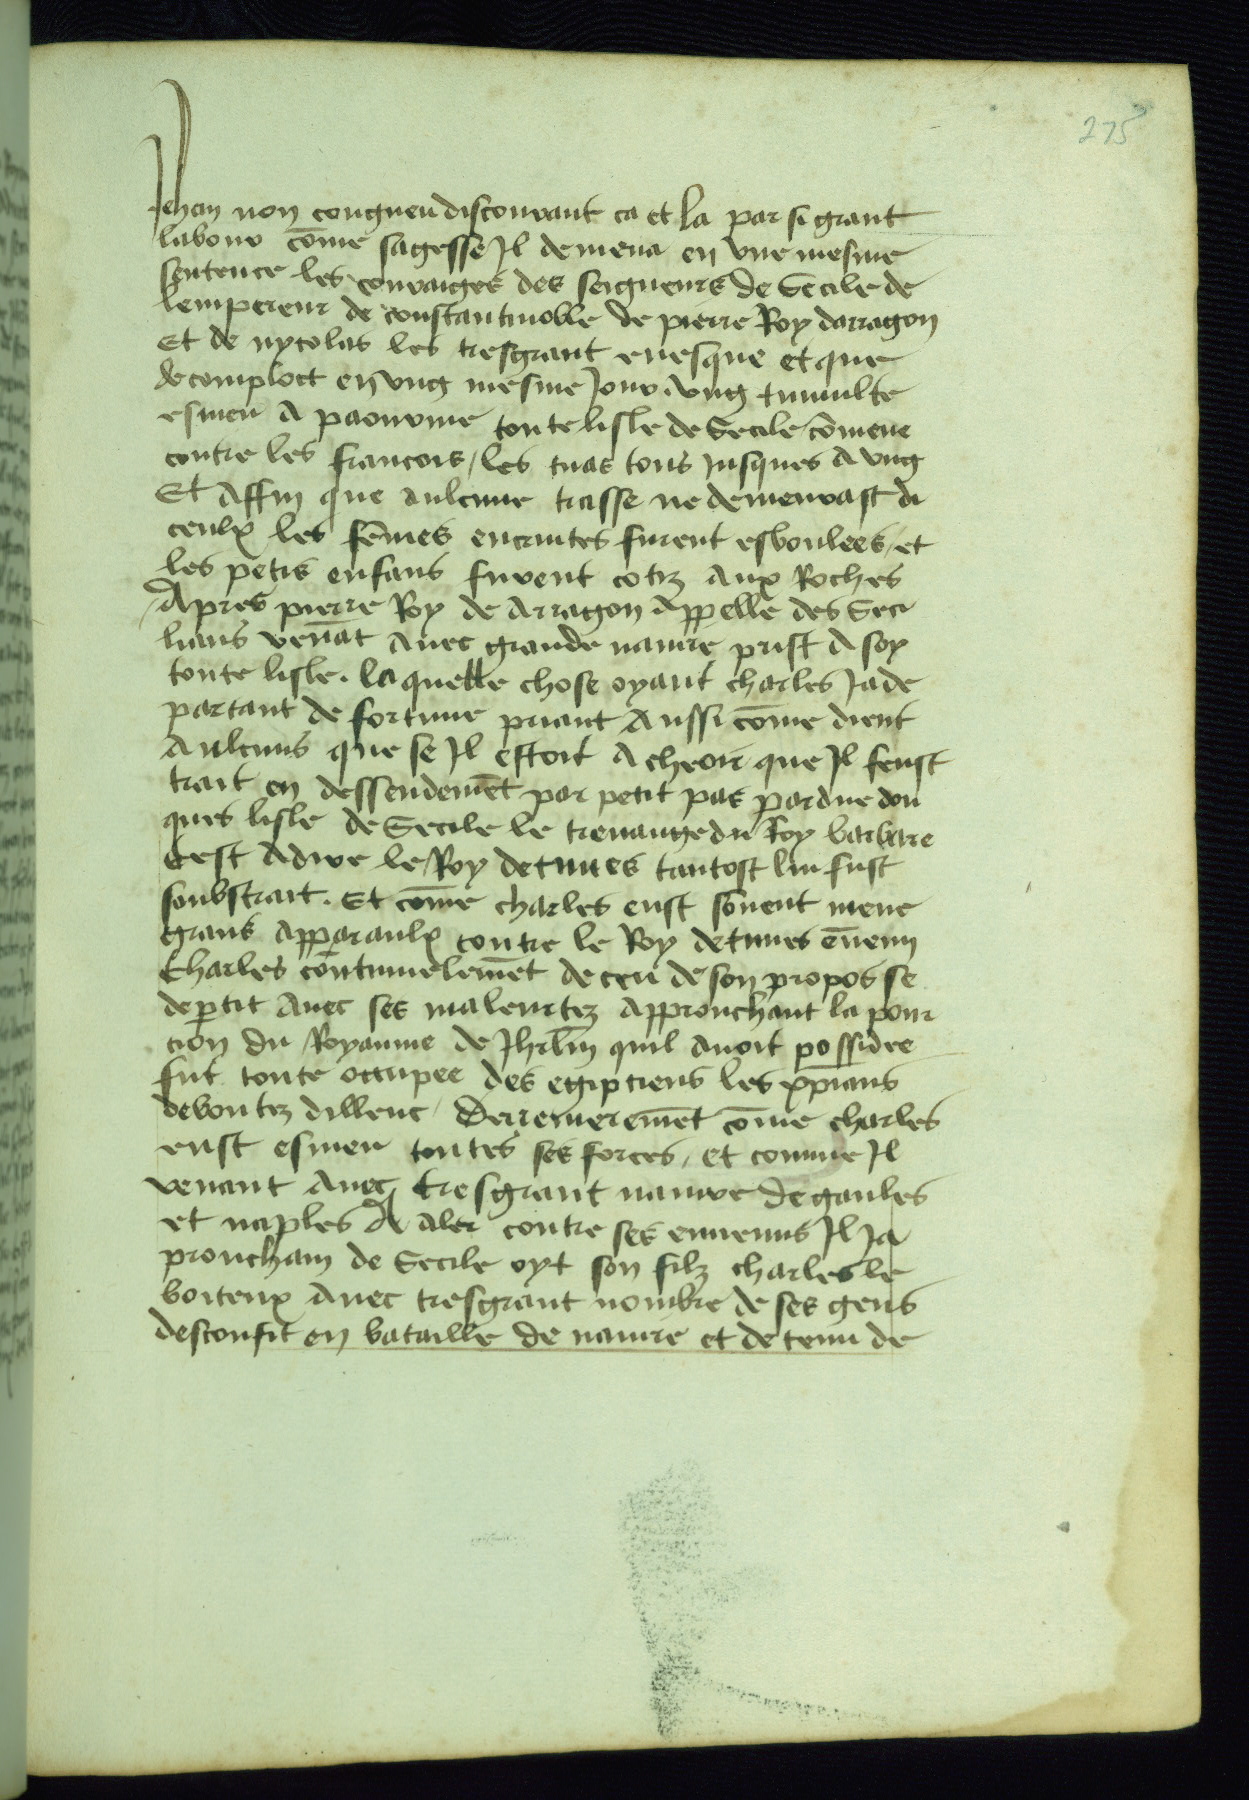 275
Jehan non congneu discourant ca et la par si grant
labour com̄e sagesse Il demena en vne mesme
sentence les couraiges des seigneurs de Secile de
lempereur de constantinoble de pierre Roy darragon
Et de nycolas les tresgrant euesque et que
de comploct en vng mesme Jour vng tumulte
esmeu A paonorme toute lisle de Secile com̄eue
contre les francois / les tuas tous jusques A vng
Et Affin que aulcune trasse ne demeurast di
ceulx les fēmes encaintes furent esboulees / et
les petis enfans furent cotiz Aux Roches
Apres pierre Roy de Arragon Appelle des Seci
liains venāt Auec grande nauire prist A soy
toute lisle. la quelle chose oyant charles Ja de
partant de fortune priant Aussi com̄e dient
Aulcuns que se Il estoit A cheoir que Il feust
trait en dessendemēt par petit pas pardue don
ques lisle de Secile le treuaige du Roy barbare
Cest Adire le Roy de tunes tantost lui fust
soubstrait. Et com̄e charles eust souuent mene
grans Apparaulx contre le Roy de tunes ēnemy
Charles contumelemēt deceu de son propos se
deptit Auec ses maleurtez Approuchant la pour
cion du Royaume de Jhrlm̄ quil Auoit possidee
fut toute occupee des egiptiens les xp̄ians
deboutez dillenc / Derrenieremēt com̄e charles
eust esmeu toutes ses forces, et comme Il
venant Auec tresgrant nauire de gaules
et naples A Aler contre ses ennemis Il Ja
prouchain de Secile oyt son filz charles le
boiteux Auec tresgrant nombre de ses gens
desconfit en bataille de nauire et detenu de